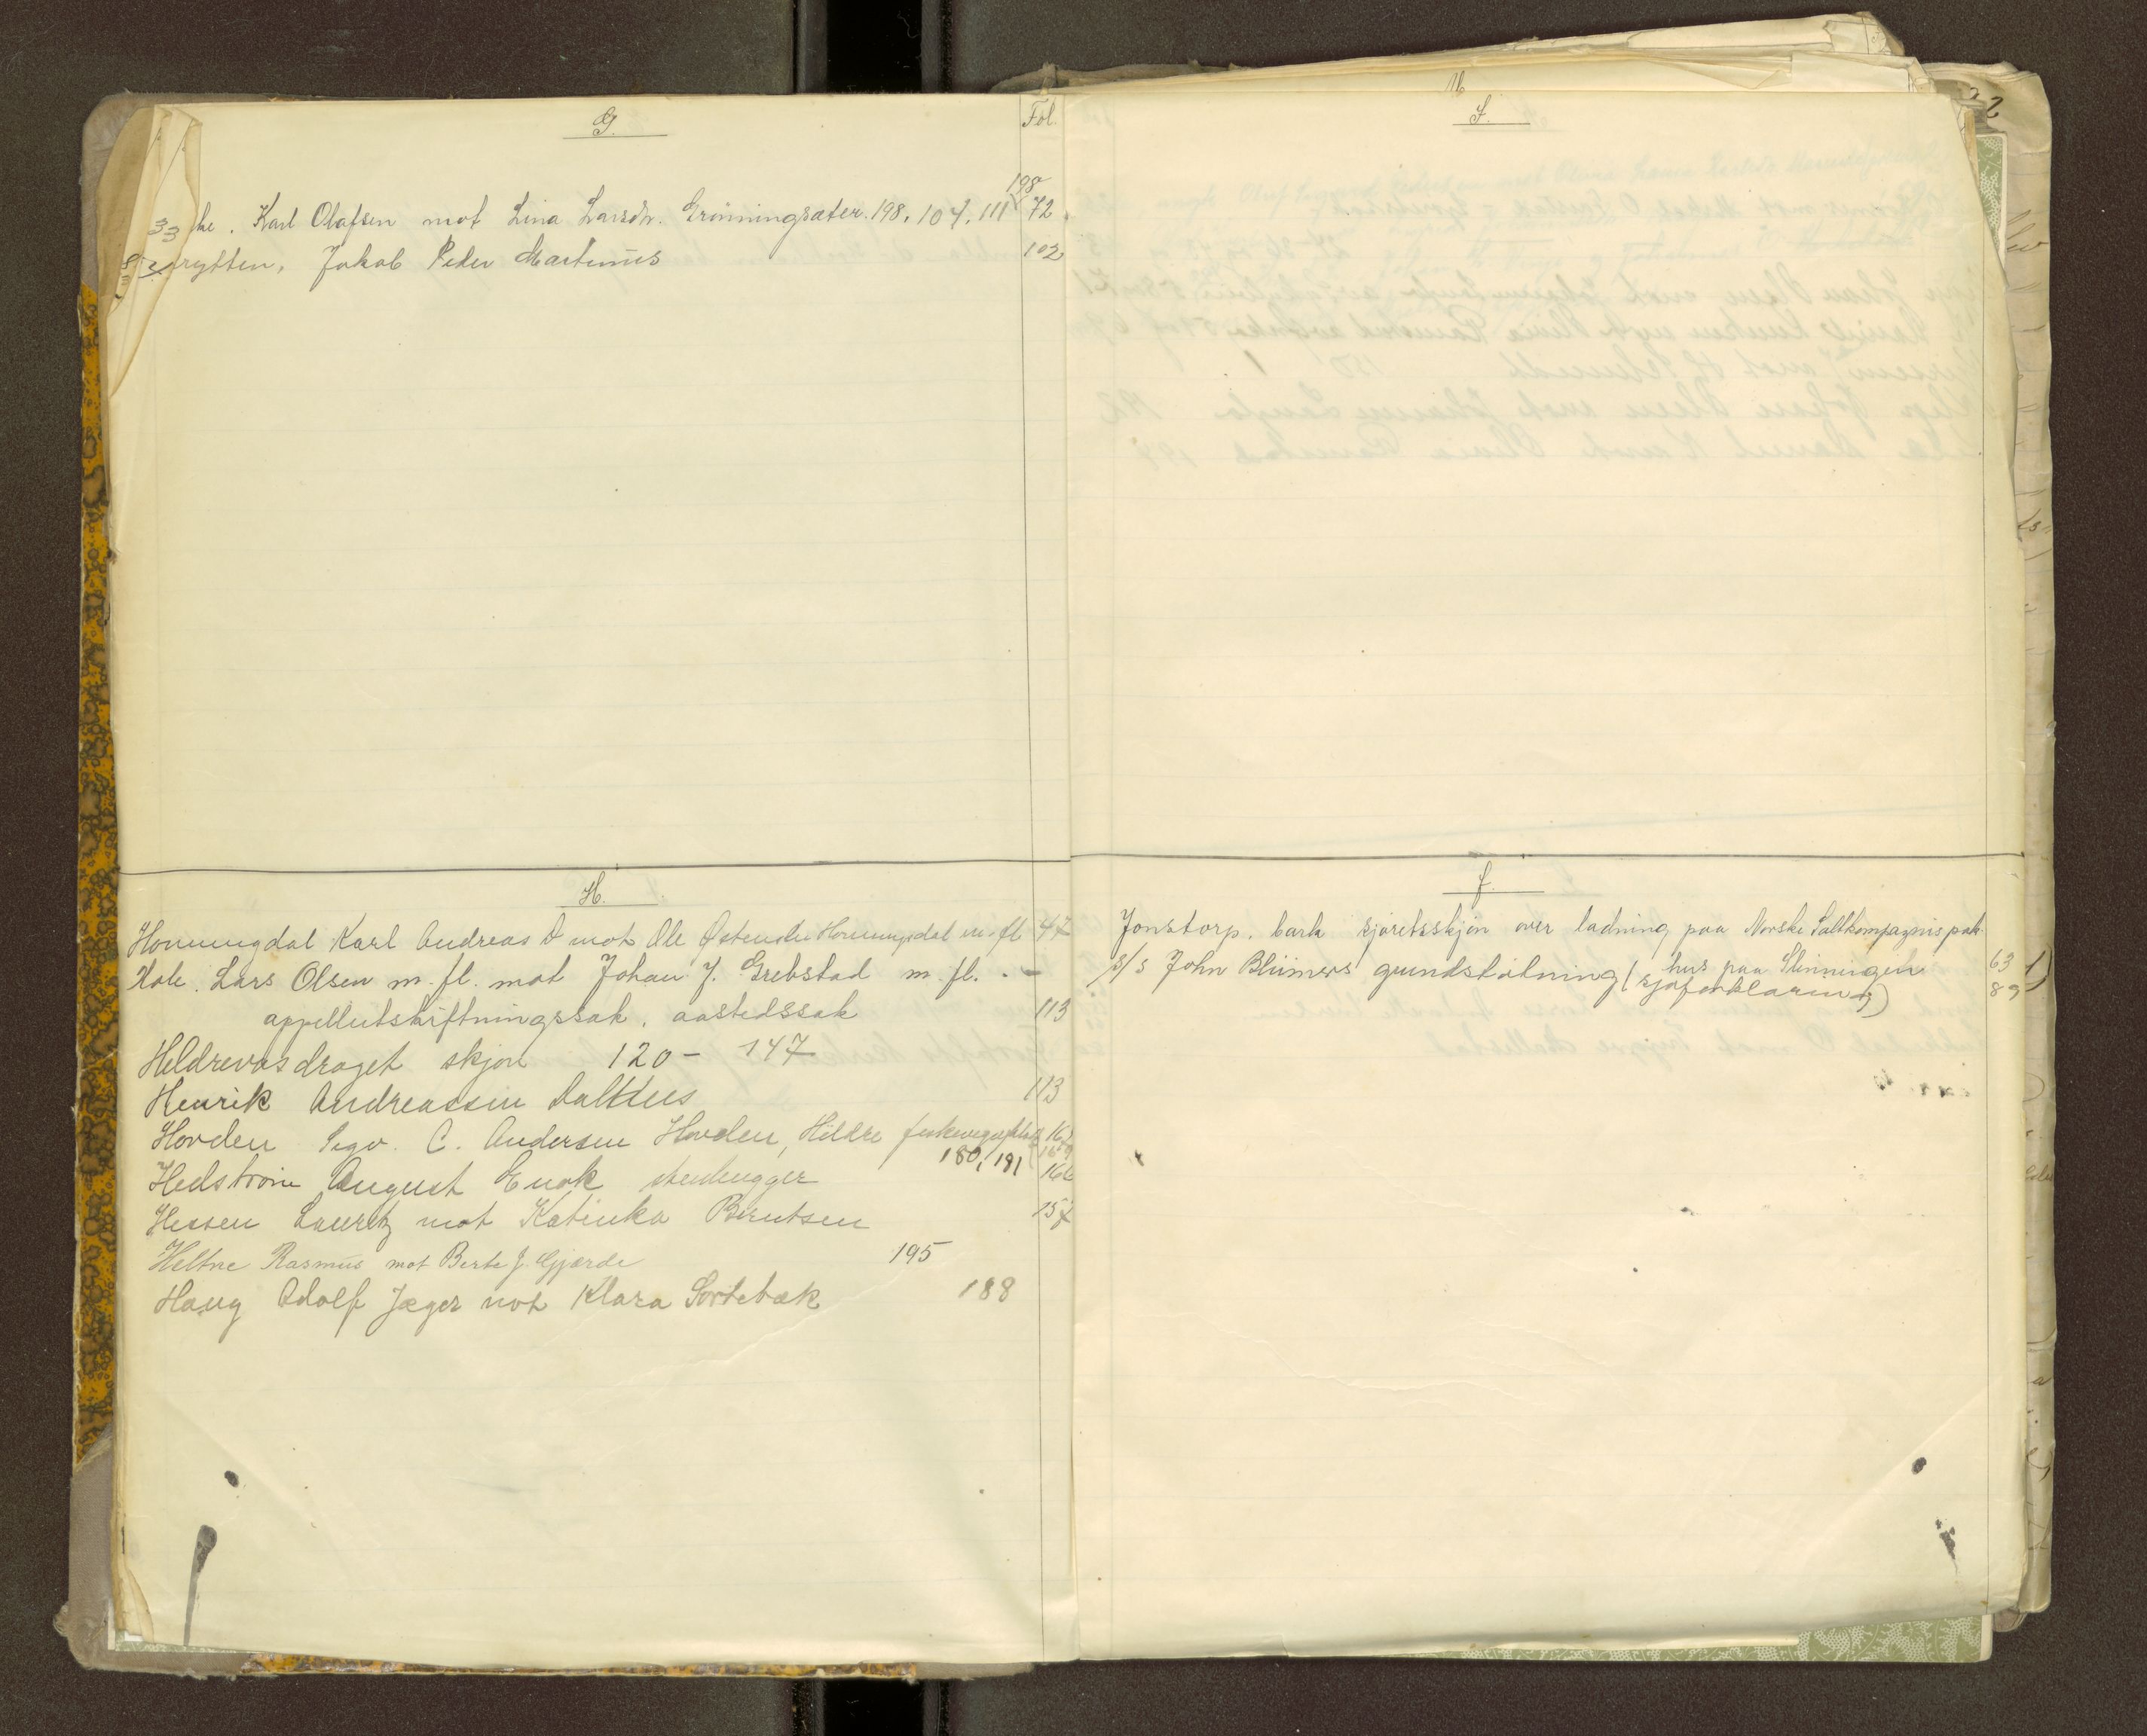 G.
Fol.
198
he. Karl Olafsen mot Lina Larsdtr. Grönningsæter. 198, 104, 111 72
rytten, Jakob Peder Martinus 102
H.
Hornungdal Karl Andreas D mot Ole Østensen Hornungdal m. fl 47
Hole. Lars Olsen m. fl. mot Johan J. Grebstad m. fl. . -
appellutskiftningssak. aastedssak 113
Hildrevasdraget skjøn 120 - 147
Henrik Andreassen Dalhus 113
Hovden Sigv. C. Andersen Hovden, Hildre
180, 181
Hedstrøm August Enok stenhugger 166
Hessen Lauritz mot Katinka Berntsen 157
Heltne Rasmus mot Berte J. Gjærde 195
Haug Adolf Jæger mot Klara Sortebæk 188
I.
J.
Jonstorp. bark sjøretsskjøn over ladning paa Norske Saltkompagnis pak
hus paa Skinningen 63
s/s John Blümers grundstøtning (sjøforklaring) 89